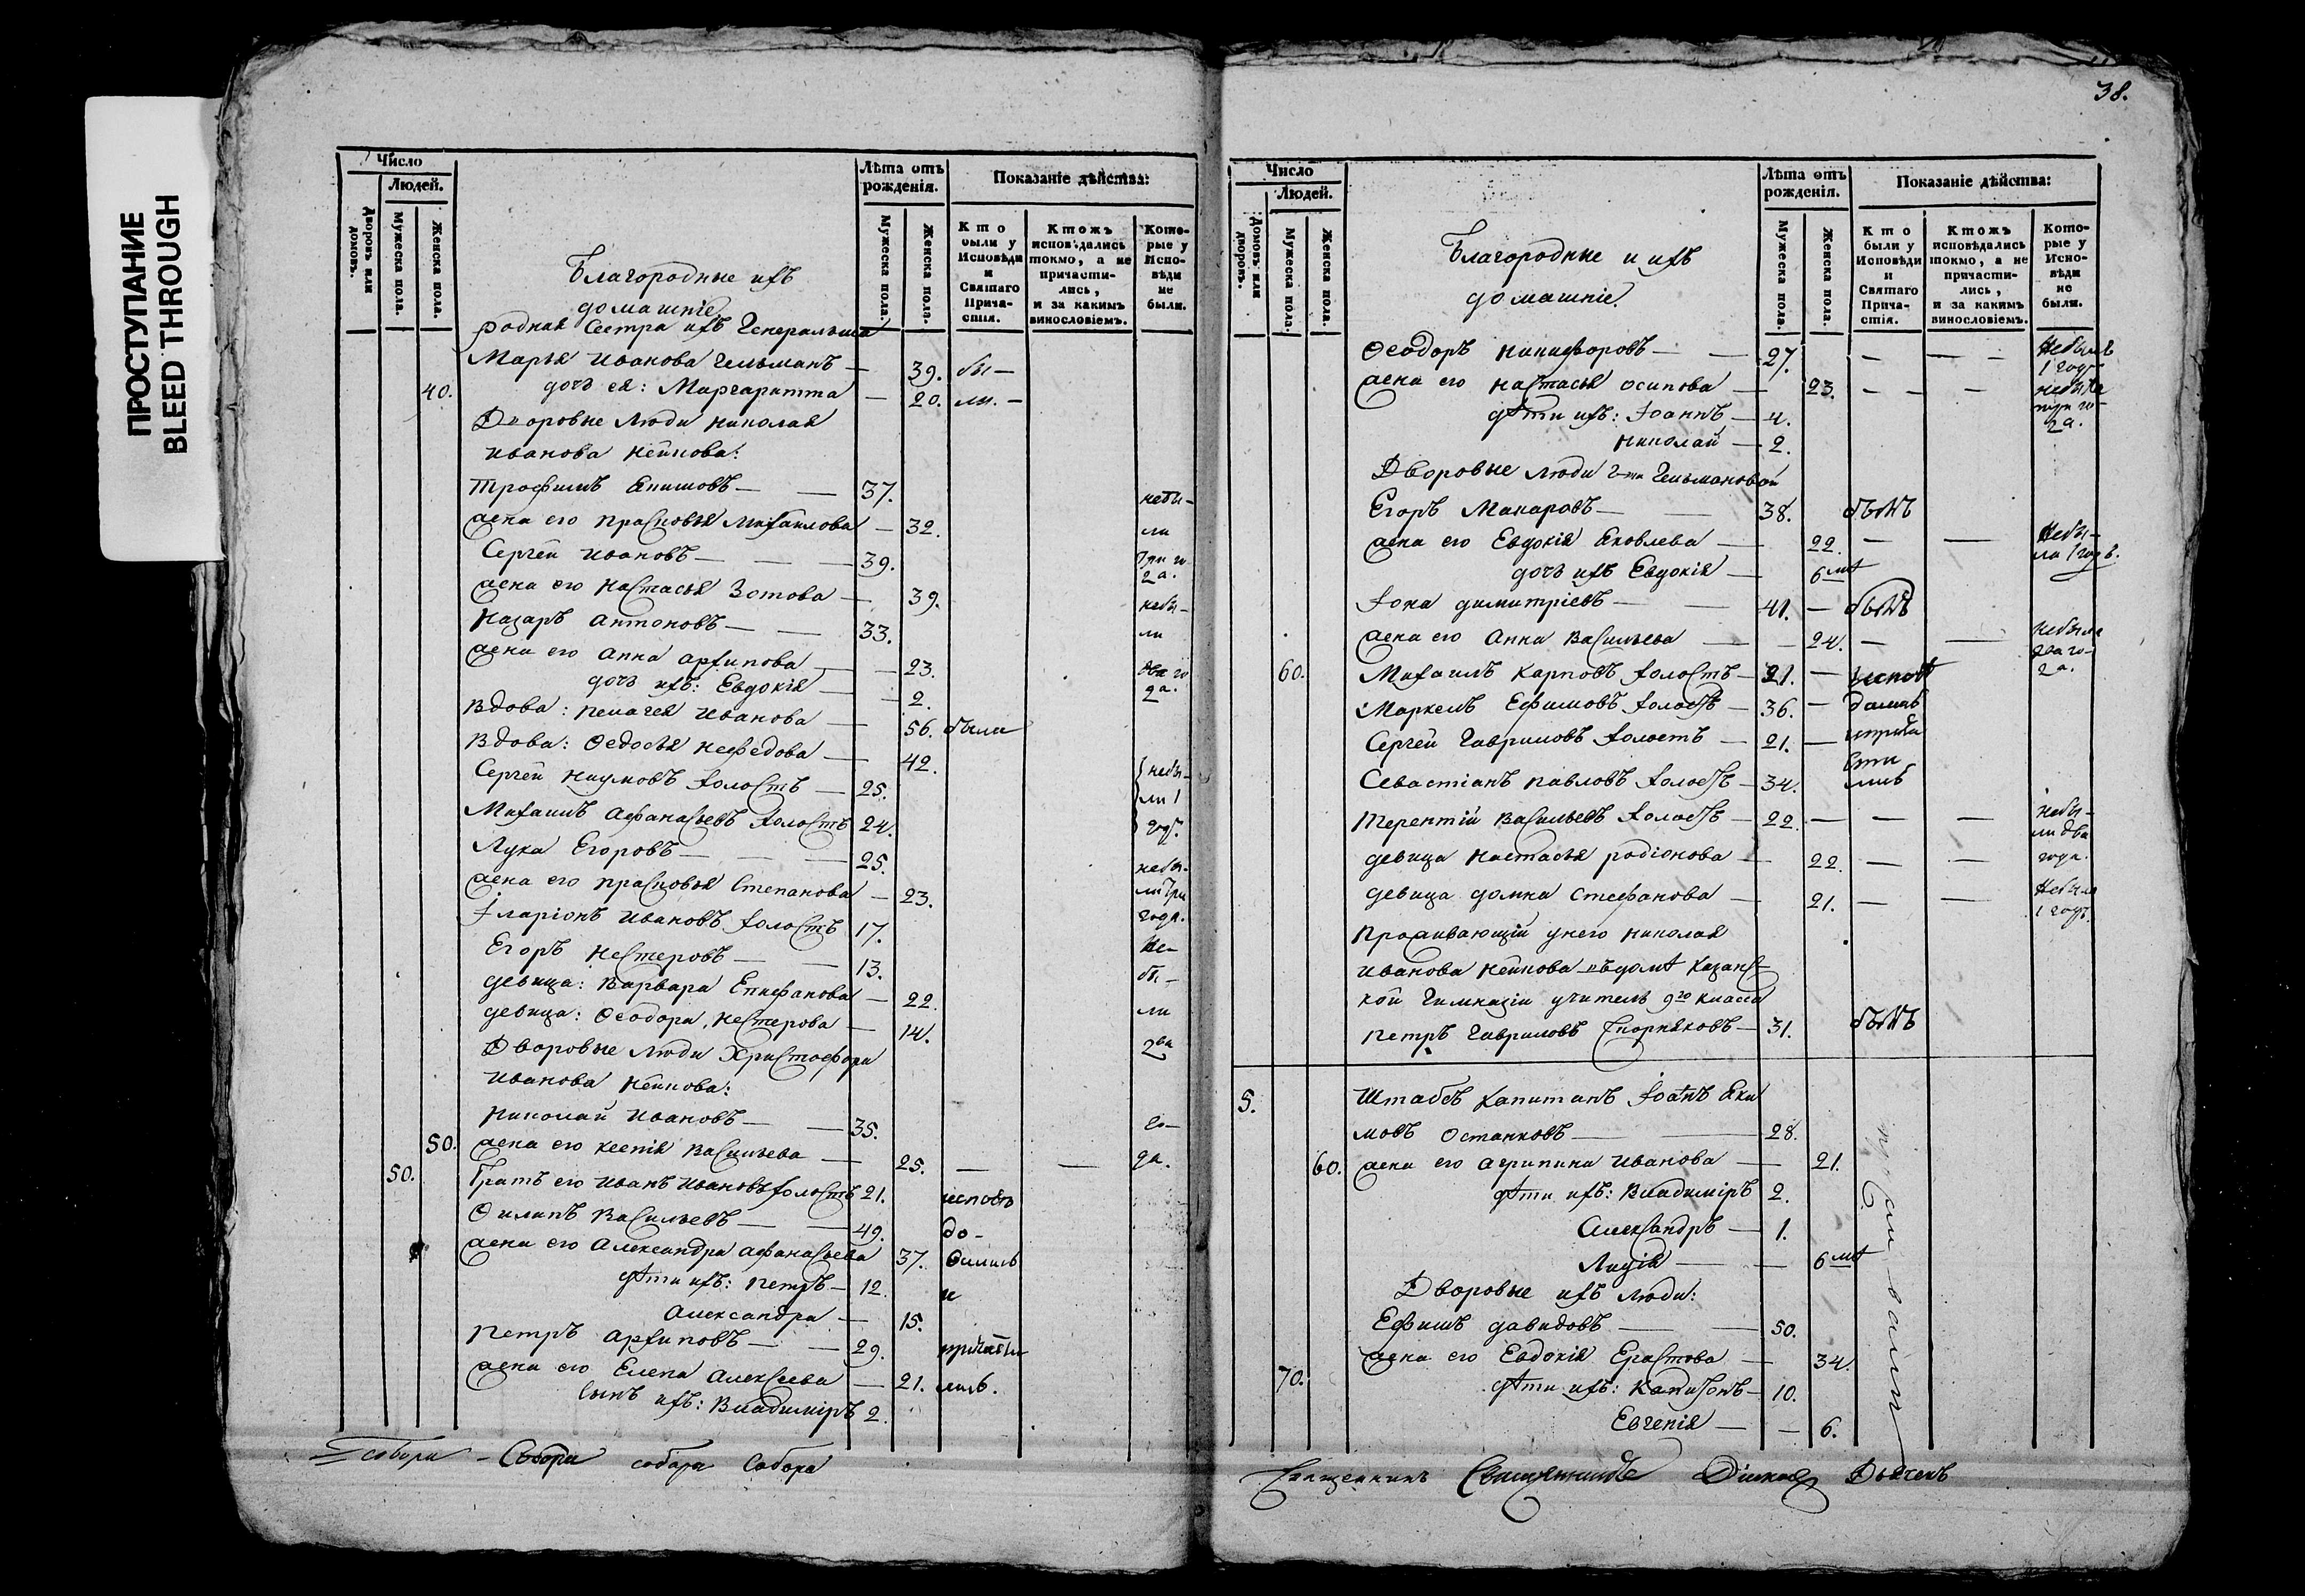 ПРОСТУПАНИЕ
BLEED THROUGH
Число
Людей.
Дворовъ или домовъ.
Мужеска пола.
Женска пола.
Лѣта отъ рожденія.
Мужеска пола.
Женска пола.
Показаніе дѣйства:
Кто были у Исповѣди и Святаго Прича-стія.
Ктожъ исповѣдались токмо, а не причасти-лись, и за какимъ винословіемъ.
Кото-рые у Испо-вѣди не были.
Благородные ихъ
домашніе
родная Сестра ихъ Генеральша
Марья Иванова Гельманъ — 39. бы —
40. дочь ея: Маргаритта — 20. ли. —
Дворовые люди Николая
Иванова Нейкова:
Трофимъ Акимовъ — 37. небы-
жена его Прасковья Михайлова — 32. ли
Сергей Ивановъ — 39. три го-
да.
жена его Настасья Зотова — 39. небы-
Назаръ Антоновъ — 33. ли
жена его Анна Архипова — 23. два го
дочь ихъ: Евдокія — 2. да.
Вдова: Пелагея Иванова — 56. были
Вдова: Ѳедосья Нефедова — 42.
Сергей Наумовъ холостъ — 25. небы-
ли 1
Михаилъ Афанасьевъ холостъ 24. годъ.
Лука Егоровъ — 25. небы-
жена его Прасковья Степанова — 23. ли три
Іларіонъ Ивановъ холостъ 17. года.
Егоръ Нестеровъ — 13. Не-
девица: Варвара Епифанова — 22. бы-
девица: Ѳеодора Нестерова — 14. ли
Дворовые люди Христофора два
Иванова Нейкова:
Николай Ивановъ — 35. го-
50. жена его Ксенія Васильева — 25. — — да.
50. Братъ его Иванъ Ивановъ холостъ 21. исповѣ
Филипъ Васильевъ — 49. до-
жена его Александра Афанасьева 37. вались
дѣти ихъ: Петръ — 12. и
Александра — 15.
Петръ Архиповъ — 29. причасти
жена его Елена Алексеева — 21. лись.
сынъ ихъ: Владиміръ 2.
собора — Собора собора Собора
38.
Число
Людей.
Домовъ или дворовъ.
Мужеска пола.
Женска пола.
Лѣта отъ рожденія.
Мужеска пола.
Женска пола.
Показаніе дѣйства:
Кто были у Исповѣди и Святаго Прича-стія.
Ктожъ исповѣдались токмо, а не причасти-лись, и за какимъ винословіемъ.
Кото-рые у Испо-вѣди не были.
Благородные и ихъ
домашніе.
Ѳеодоръ Никифоровъ — 27. — — — Небылъ
1 годъ
жена его Настасья Осипова — 23. — — — небыла
три го-
да.
дѣти ихъ: Іоаннъ — 4.
Николай — 2.
Дворовые люди Г-жи Гельмановой
Егоръ Макаровъ — 38. былъ
жена его Евдокія Яковлева — 22. — — Небы-
ли 1 годъ.
дочь ихъ Евдокія — 6 мѣ
Іона Димитріевъ — 41. — былъ
жена его Анна Васильева — 24. — — небыла
два го-
да.
60. Михаилъ Карповъ холостъ — 21. — исповѣ
Маркелъ Ефимовъ холостъ — 36. — дались
Сергей Гавриловъ холостъ — 21. — и прича
Севастіанъ Павловъ холостъ — 34. сти
лись
Терентій Васильевъ холостъ — 22. — — — небы-
ли два
девица Настасья Родіонова — 22. — — года.
девица Домна Стефанова — 21. — — Небыла
1 годъ.
Проживающій у него Николая
Иванова Нейкова въ домѣ Казанс-
кой Гимназіи учитель 9го класса
Петръ Гавриловъ — 31. былъ
5. Штабсъ Капитанъ Іоанъ Яки
мовъ Останковъ — 28.
60. жена его Агрипина Иванова — 21.
дѣти ихъ: Владиміръ 2.
Александръ — 1.
Лидія — 6 мѣ
Дворовые ихъ люди:
Ефимъ Давидовъ — 50.
жена его Евдокія Ерастова — 34.
70. дѣти ихъ: Капитонъ — 10.
Евгенія — 6.
Священникъ Священникъ Діаконъ Дьячекъ